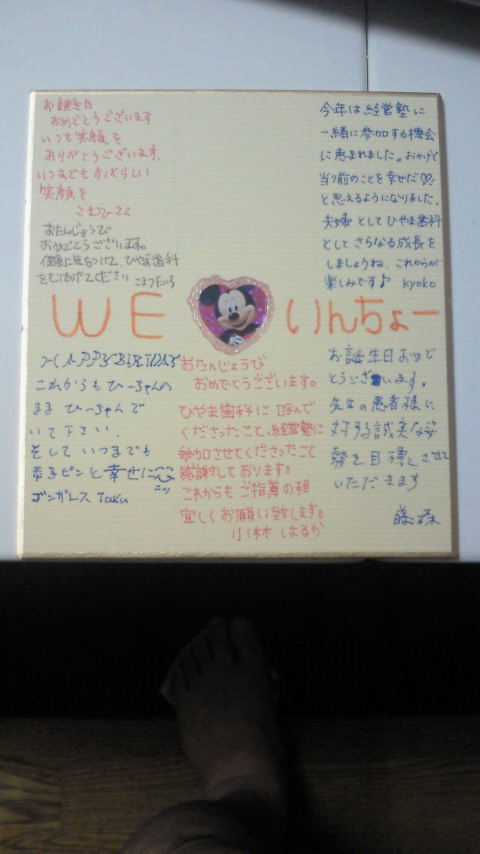 お誕生日
おめでとうございます
いつも笑顔を
ありがとうございます。
いつまでもすばらしい
笑顔を
おたんじょうび
おめでとうございます。
健康に気をつけて、ひやま歯科
をもりあげてください
今年は経営塾に
一緒に参加する機会
に恵まれました。おかげで
当り前のことを幸せだ♡
と思えるようになりました。
夫婦としてひやま歯科
としてさらなる成長を
しましょうね。これからが
楽しみです♪ kyoko
WE いんちょー
HAPPY BIRTHDAY
これからもひーちゃんの
まま ひーちゃんで
いて下さい。
そして いつまでも
ピンと幸せに
ゴンザレス Taku
おたんじょうび
おめでとうございます。
ひやま歯科に呼んで
くださったこと、経営塾に
参加させてくださったこと
感謝しております。
これからもご指導の程
宜しくお願い致します。
小林 はるか
お誕生日おめで
とうございます。
先生の患者様に
対する誠実な姿
勢を目標とさせて
いただきます
藤森